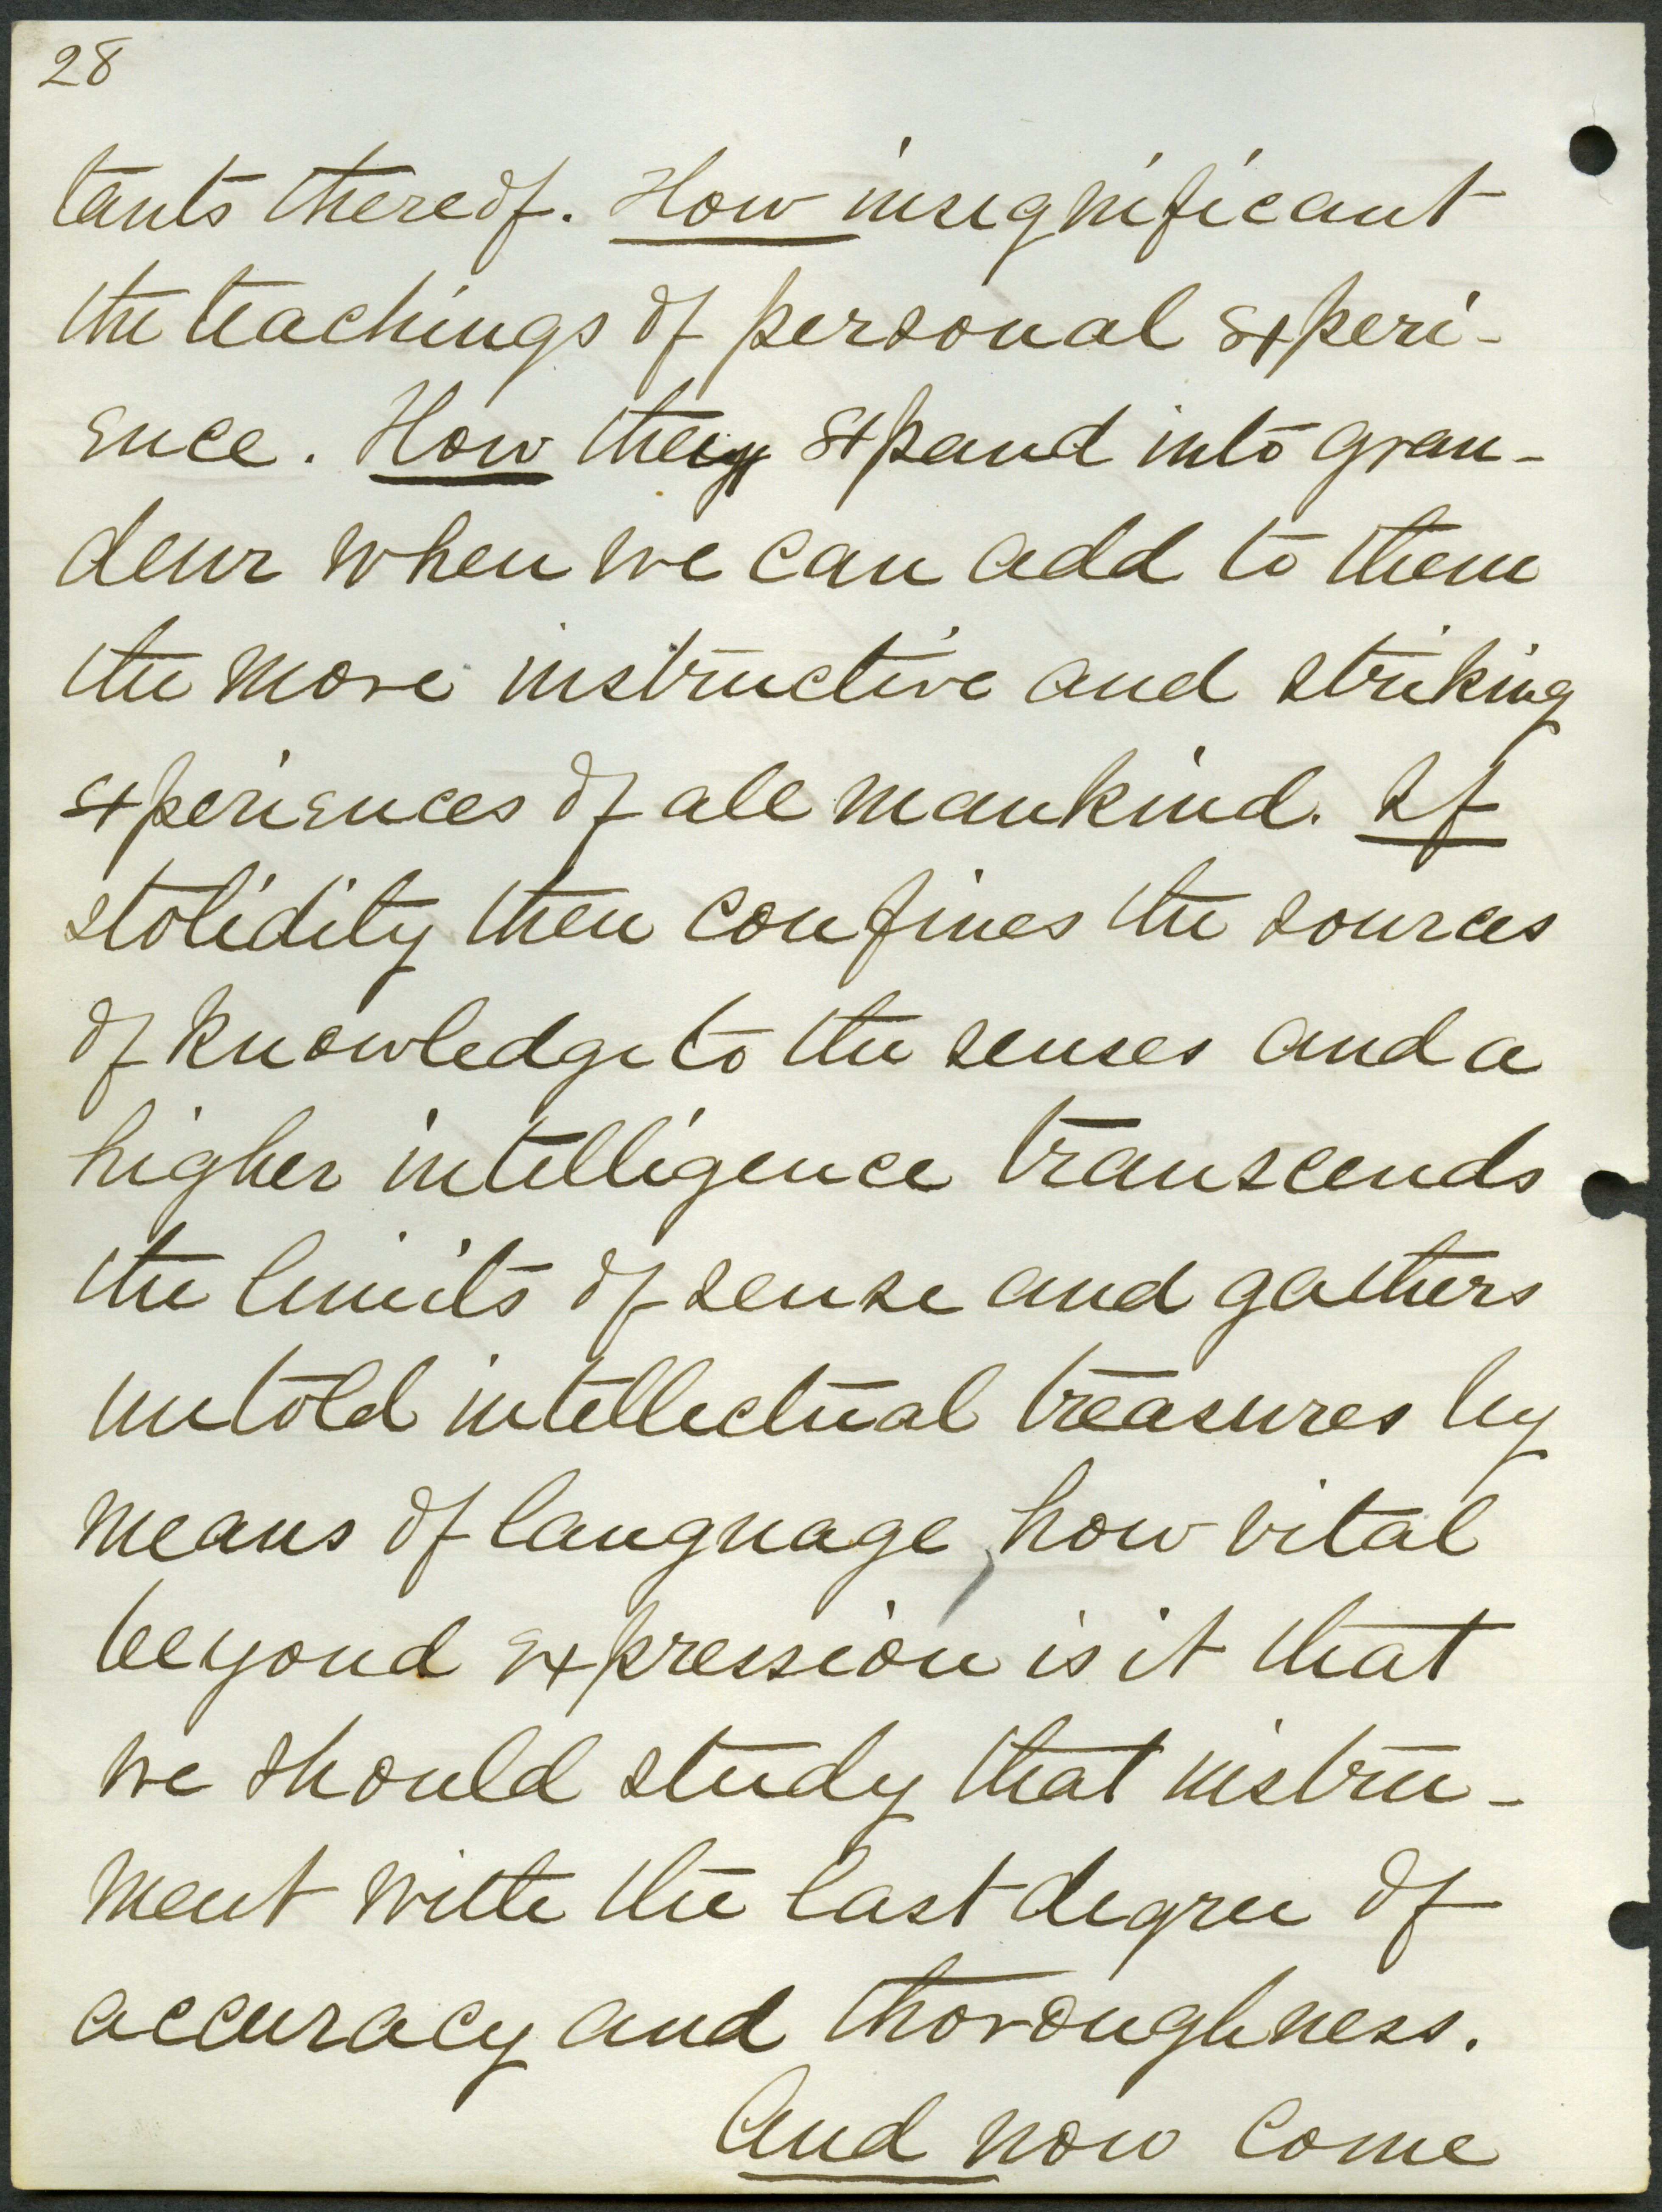 28
tants thereof. How insignificant
the teachings of personal experi-
ence. How they expand into gran-
deur when we can add to them
the more instructive and striking
experiences of all mankind. If
stolidity then confines the sources
of knowledge to the senses and a
higher intelligence transcends
the limits of sense and gathers
untold intellectual treasures by
means of language, how vital
beyond expression is it that
we should study that instru-
ment with the last degree of
accuracy and thoroughness.
And now come